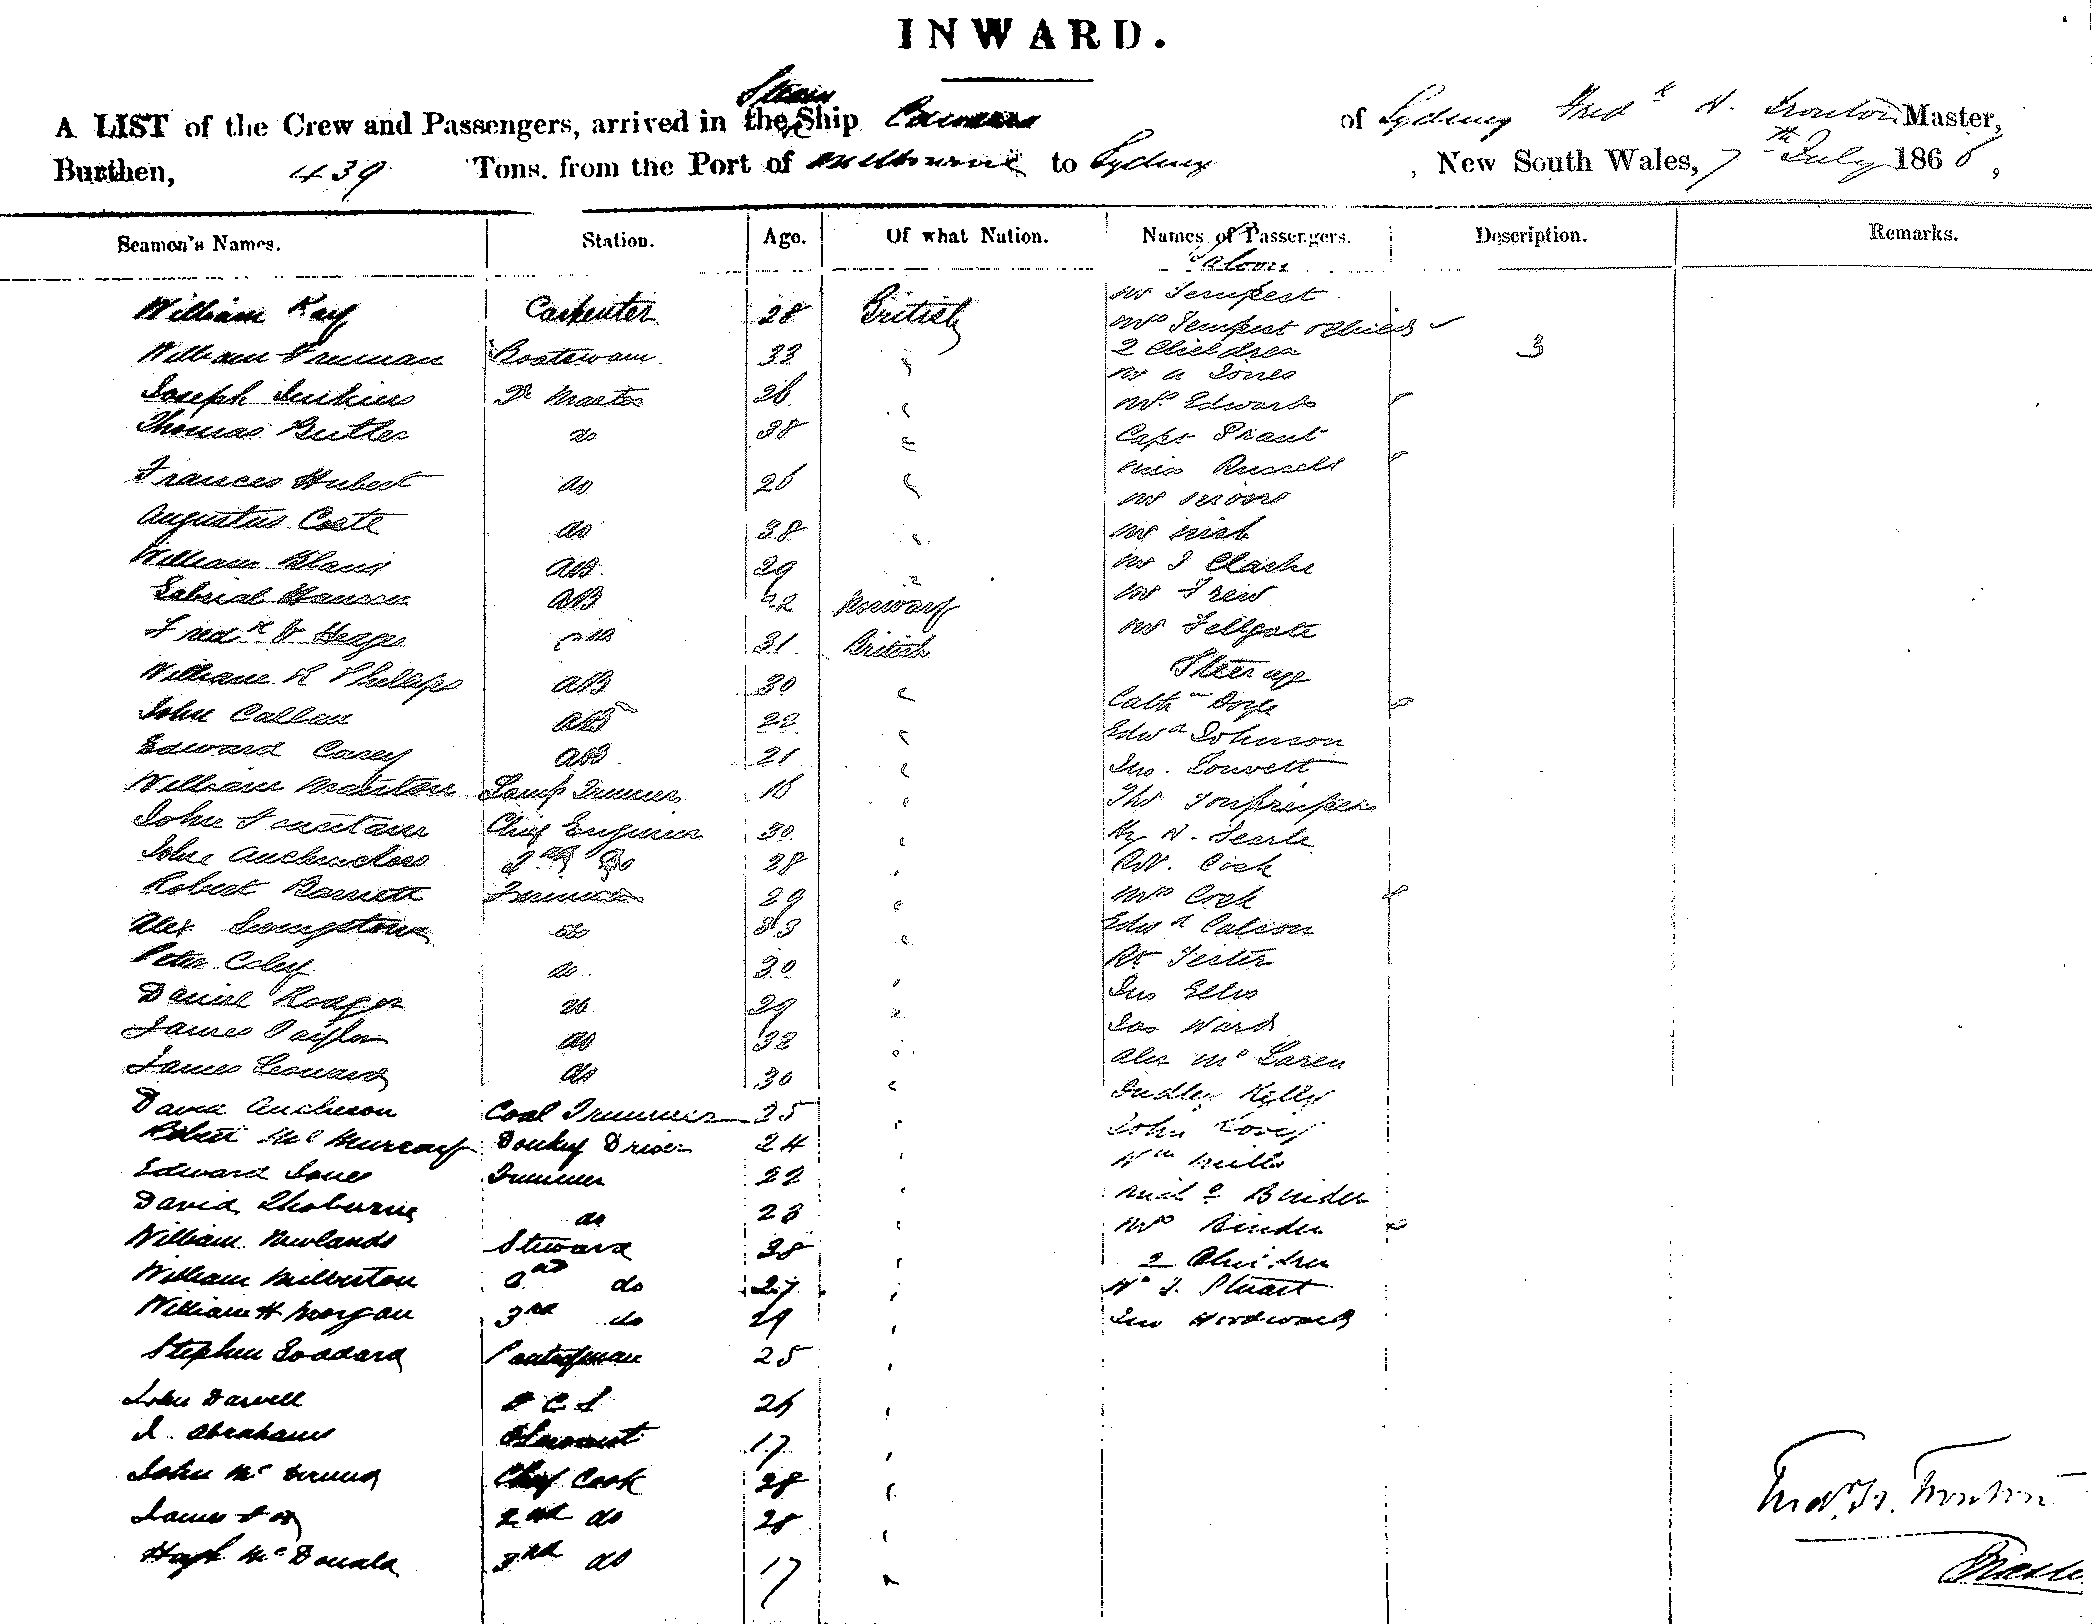 INWARD.
A LIST of the Crew and Passengers, arrived in the Steam Ship of Sydney Fredk H. Trouton Master,
Burthen, 439 Tons. from the Port of Melbourne to Sydney, New South Wales, 7th July 1868,
Seamen's Names. Station. Age. Of what Nation. Names of Passengers. Description. Remarks.
Saloon
William Kay Carpenter 28 British Mr Tempest
Mrs Tempest
William Freeman Boatswain 33 " 2 Children 3
Mr A Jones
Joseph Jenkins Qr Master 26 " Mrs Edwards
Thomas Butler do 38 " Capt
Frances Hubert do 26 " Miss Russell
Mr
Augustus Coste do 38 " Mr
William Bland AB 29 " Mr J Clarke
Gabrial Hanson AB 42 Norway Mr
Fredk W Hedges AB 31 British Mr Fellgate
Steerage
William R Phillips AB 30 " Cathn Doyle
John Callan AB 22 " Edwd Johnson
Edward Casey AB 21 " Jno.
William Manton Lamp Trimmer 16 " Thos
John Chief Engineer 30 " Hy W. Searle
John Auchincloss 2nd Do 28 " Cock
Robert Barnett Fireman 29 " Mrs Cock
Alex Livingstone do 33 " Edwd
Peter Coley do 30 " Tester
Daniel Rodger do 29 " Jno Ellis
James Taylor do 32 " Jas Ward
James Leonard do 30 " Alex McLaren
David Coal Trimmer 25 " Dudley Kelly
Robert McMurray Donkey Driver 24 " John
Edward Jones Trimmer 22 " Wm Mills
David Thoburne do 23 " Binder
William Newlands Steward 38 " Mrs Binder
2 Children
William Milberton 2nd do 27 " Wm J. Stuart
William H Morgan 3rd do 29 " Jno
Stephen Goddard Pantryman 25 "
John Darvell 26 "
J. Abrahams 17 "
John Mc Chief Cook 28 "
James Foy 2nd do 28 "
Hugh McDonald 3rd do 17 "
Fredk H. Trouton
Master